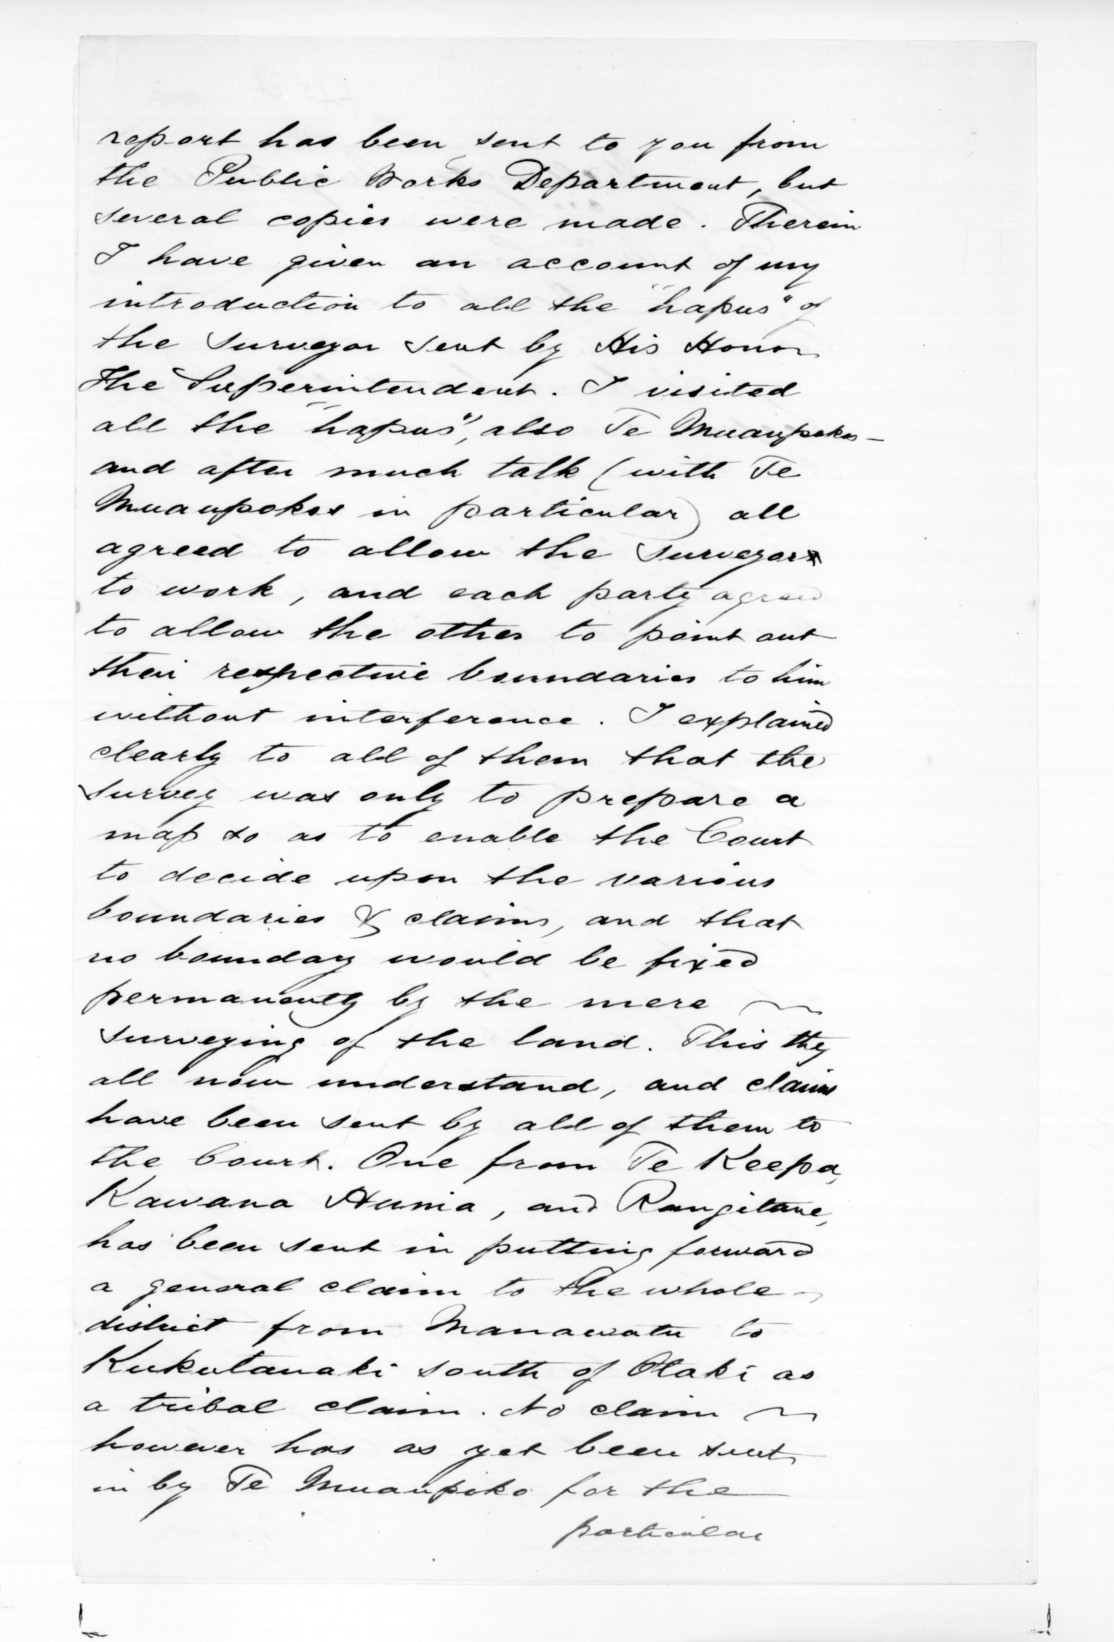 report has been sent to you from
the Public Works Department, but
several copies were made. Therein
I have given an account of my
introduction to all the "hapus" of
the surveyor sent by His Honor
The Superintendent. I visited
all the "hapus", also Te Muaupokos –
and after much talk (with Te
Muaupokos in particular) all
agreed to allow the surveyor
to work, and each party agreed
to allow the other to point out
their respective boundaries to him
without interference. I explained
clearly to all of them that the
survey was only to prepare a
map so as to enable the Court
to decide upon the various
boundaries & claims, and that
no boundary would be fixed
permanently by the mere
surveying of the land. This they
all now understand, and claims
have been sent by all of them to
the Court. One from Te Keepa,
Kawana Hunia, and Rangitane,
has been sent in putting forward
a general claim to the whole
district from Manawatu to
Kukutauaki south of Otaki as
a tribal claim. No claim
however has as yet been sent
in by Te Muaupiko for the
particular